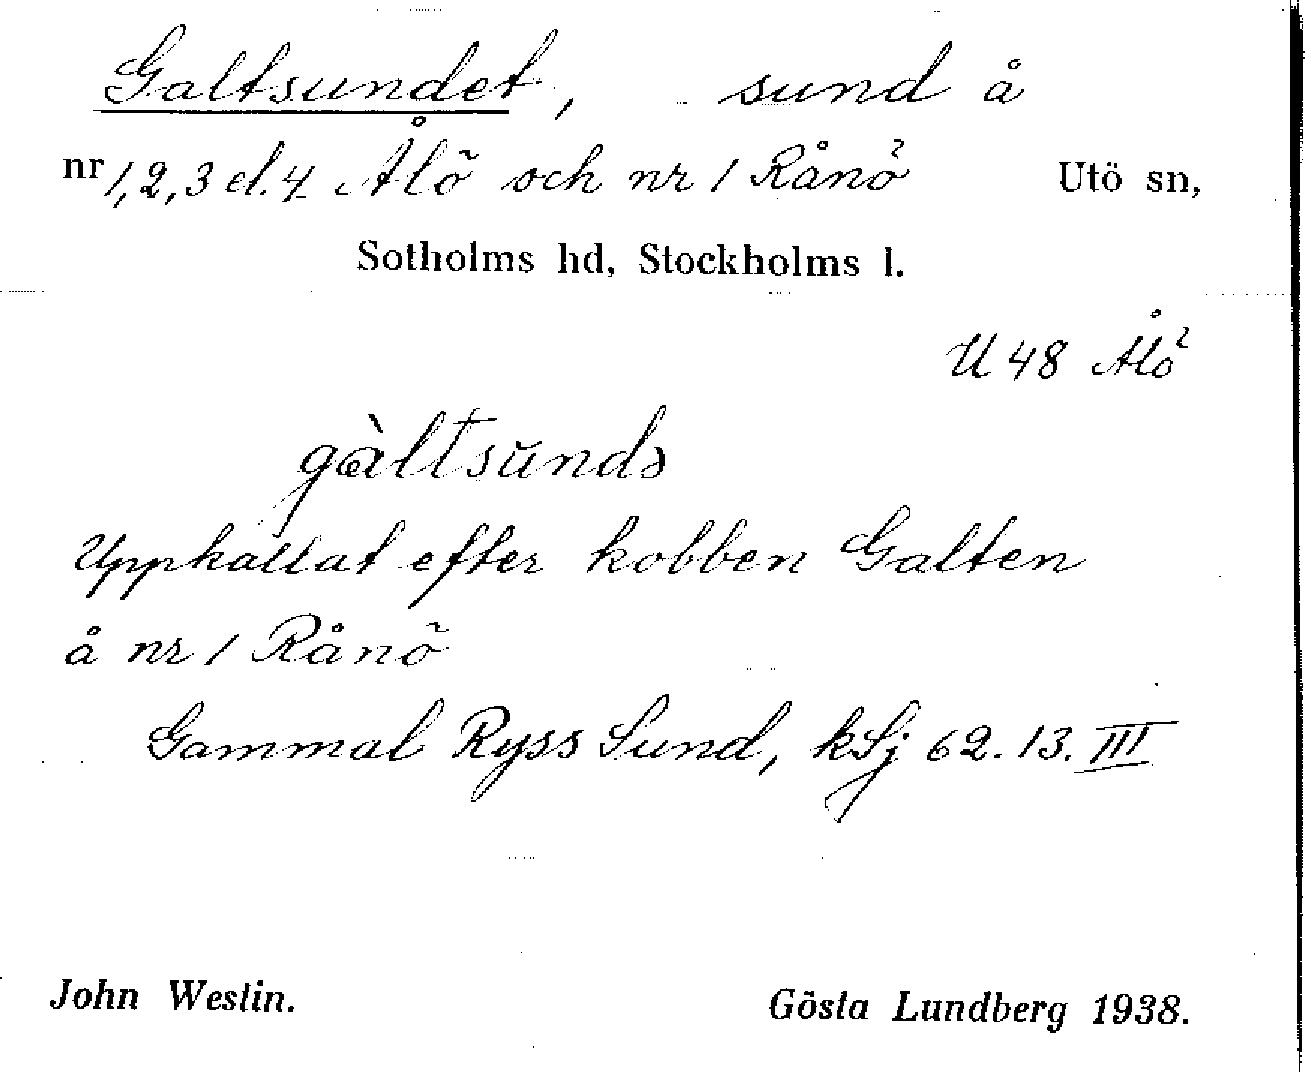 Galtsundet, sund å
nr 1, 2, 3 el. 4 Ålö och nr 1 Rånö Utö sn,
Sotholms hd, Stockholms l.
U 48 Ålö
gàltsŭndə
Uppkallat efter kobben Galten
å nr 1 Rånö
Gammal Ryss Sund, kSj 62. 13. III
John Westin. Gösta Lundberg 1938.